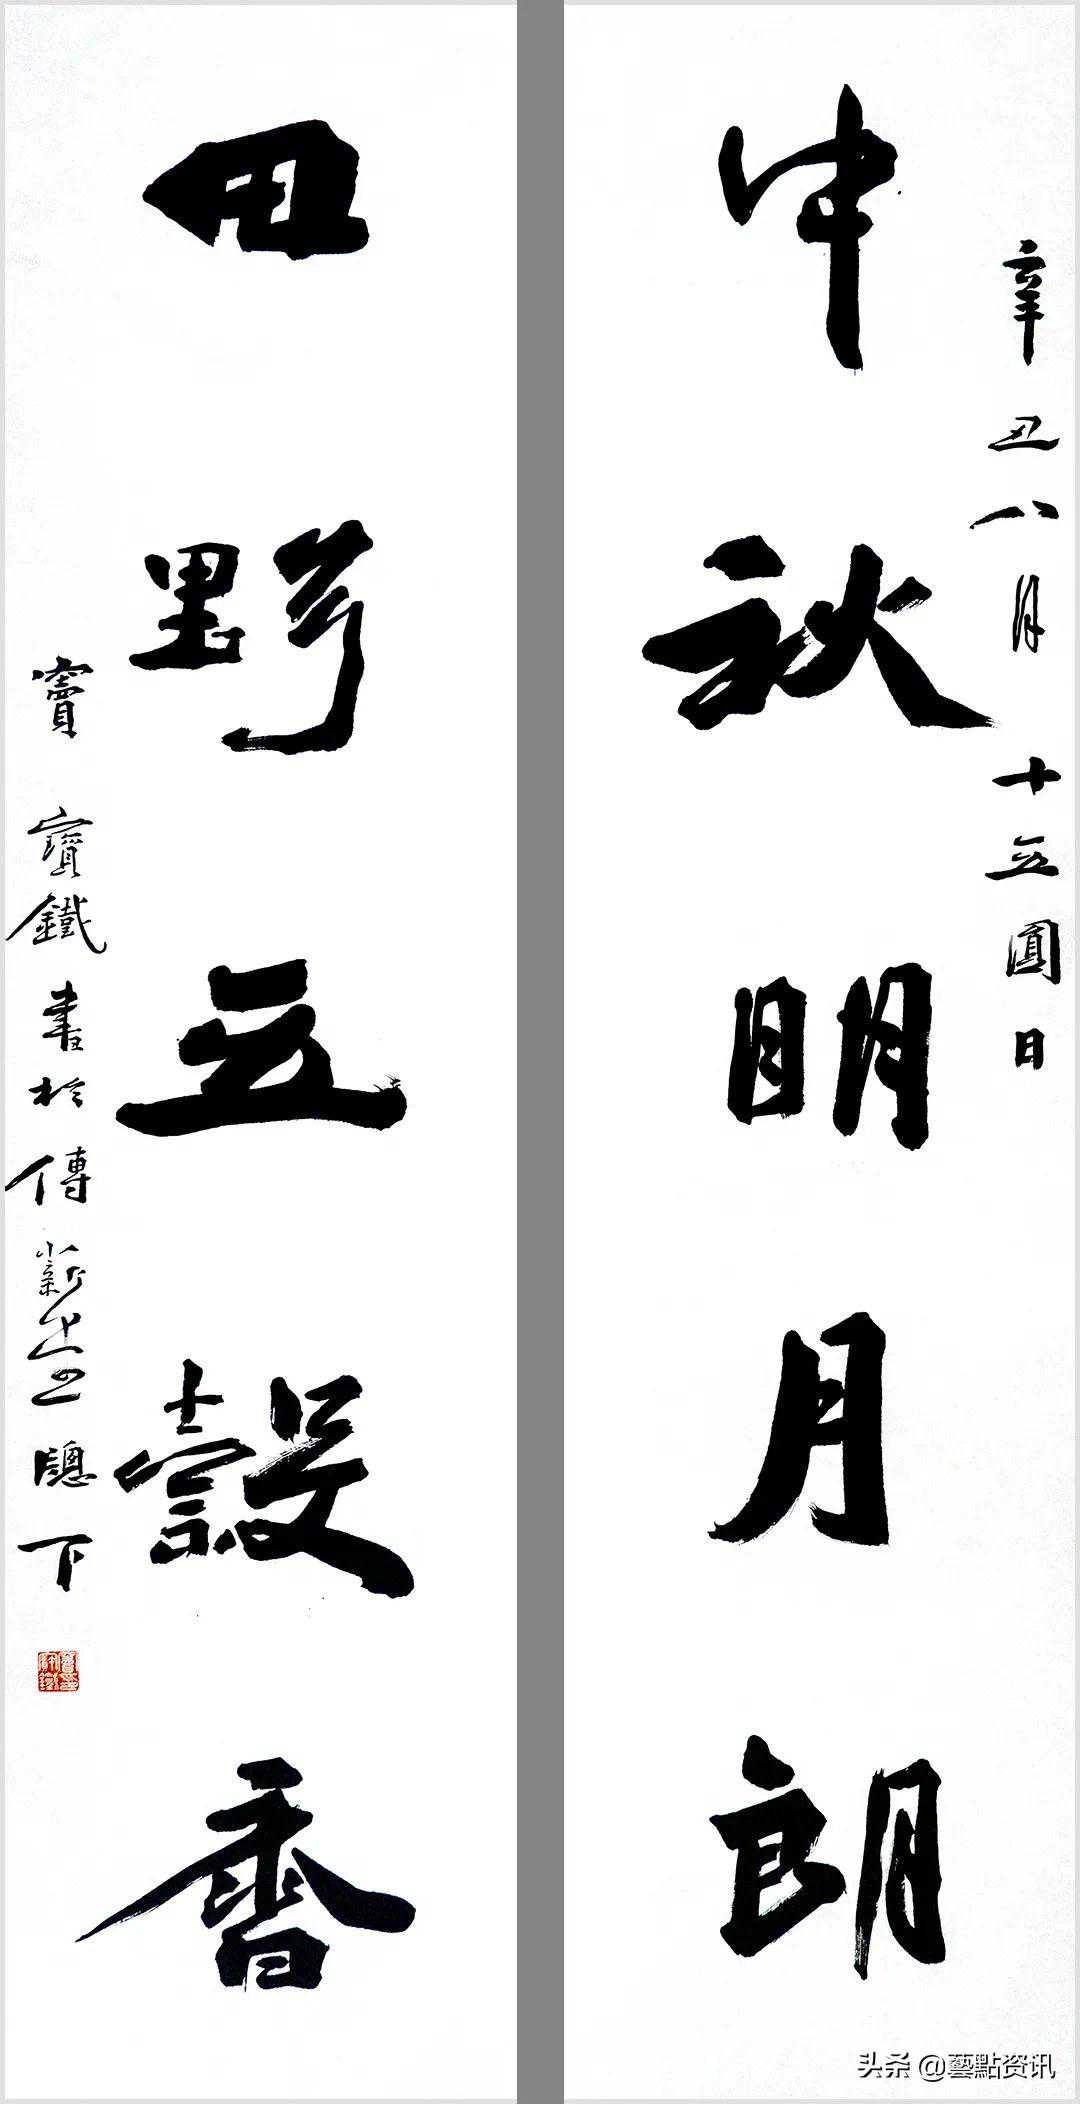 辛丑八月十五圓日
中秋明月朗
田野五穀香
竇寶鐵書於傳薪牕下
头条 @藝點资讯